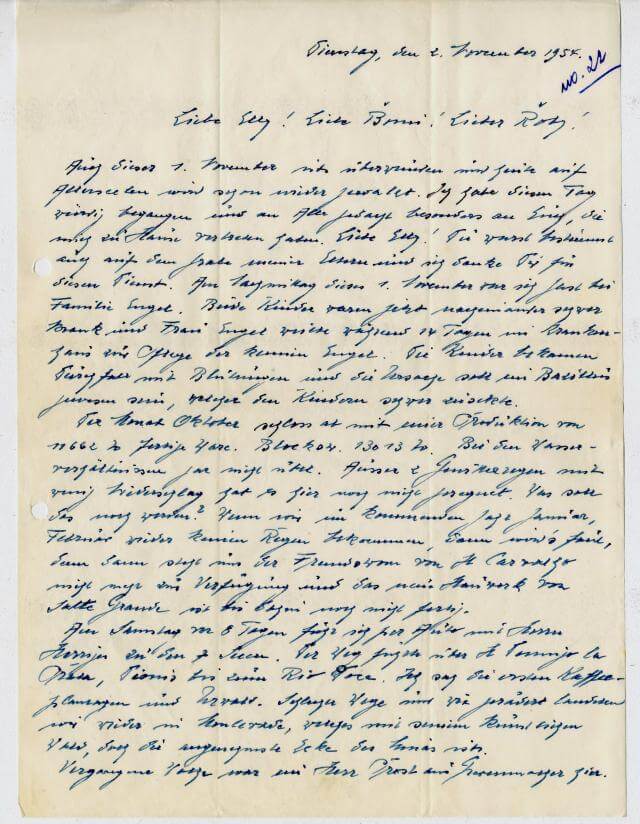 Dienstag, den 2. November 1954.
no. 22
Liebe Elly! Liebe Bomi! Lieber Röby!
Auch dieser 1. November ists überwunden und heute auf
Allerseelen wird schon wieder gewalzt. Ich habe diesen Tag
würdig begangen und an Alle gedacht besonders an Euch, die
mich zu Hause vertreten haben. Liebe Elly! Du warst bestimmt
auch auf dem Grabe meiner Eltern und ich danke Dir für
diesen Dienst. Am Nachmittag dieses 1. November war ich Gast bei
Familie Engel. Beide Kinder waren jetzt nacheinander schwer
krank und Frau Engel weilte während 14 Tagen im Kranken-
haus zur Pflege der kleinen Engel. Die Kinder bekamen
Durchfall mit Blutungen und die Ursache soll ein Bazillus
gewesen sein, welcher den Kindern schwer zusetzte.
Der Monat Oktober schloss ab mit einer Produktion von
11662 To fertige Ware. Blockow. 13013 to. Bei den Wasser-
verhältnissen gar nicht übel. Ausser 2 Gewitterregen mit
wenig Niederschlag hat es hier noch nicht geregnet. Was soll
das noch werden? Wenn wir im kommenden Jahr Januar,
Februar wieder keinen Regen bekommen, dann wird's faul,
denn dann steht uns der Fremdstrom von H. Carvalho
nicht mehr zur Verfügung und das neue Kraftwerk von
Salto Grande ist bis dahin noch nicht fertig.
Am Samstag vor 8 Tagen fuhr ich per Auto mit Herrn
zu den 7 Seen. Der Weg führte über St Domingo la
Prata, Dionis bis zum Rio Doce. Ich sah die ersten Kaffee-
plantagen und Urwald. Schlechte Wege und wir landeten
wieder in Monlevade, welches mit seinem künstlichen
Wald, doch die angenehmste Ecke des Minas ists.
Vergangene Woche war ein Herr Prost aus Grevenmacher hier.